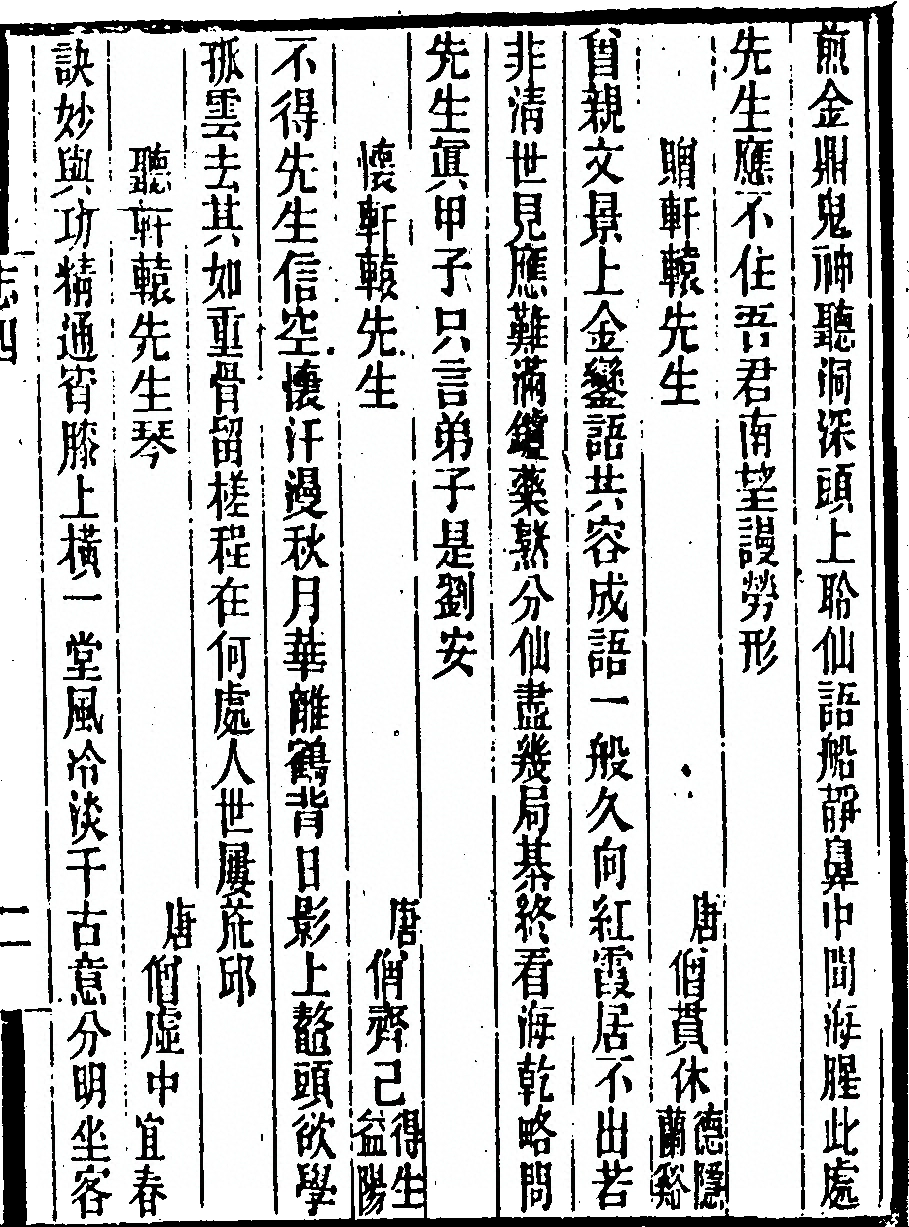 煎金鼎鬼神聽洞深頭上聆仙語船靜鼻中聞海腥此處
先生應不住吾君南望謾勞形
贈軒轅先生 唐僧貫休德隱蘭谿
曾親文景上金鑾語共容成語一般久向紅霞居不出若
非清世見應難滿鑪藥熟分仙盡幾局棊終看海乾略問
先生眞甲子只言弟子是劉安
懷軒轅先生 唐僧齊己得生益陽
不得先生信空懷汗漫秋月華離鶴背日影上鼇頭欲學
孤雲去其如重骨留槎程在何處人世屢荒邱
聽軒轅先生琴 唐僧虛中宜春
訣妙與功精通宵膝上橫一堂風冷淡千古意分明坐客
志四
二